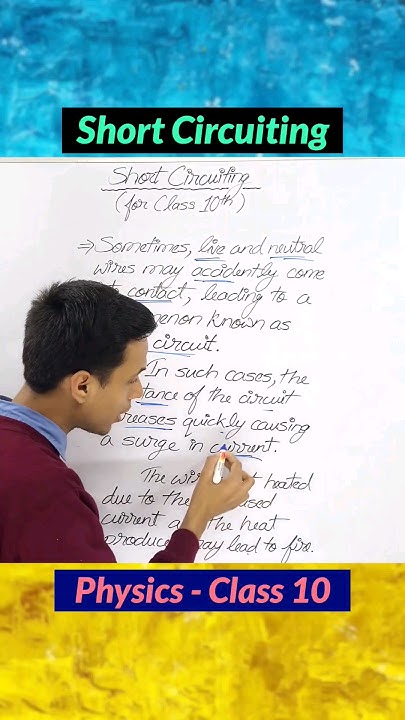 Short Circuiting
Short Circuiting
(for Class 10th)
⇒ Sometimes, live and neutral
wires may accidently come
contact, leading to a
menon known as
circuit.
In such cases, the
tance of the circuit
reases quickly causing
a surge in current.
The wi heated
due to the sed
current a the heat
produce may lead to fire.
Physics - Class 10